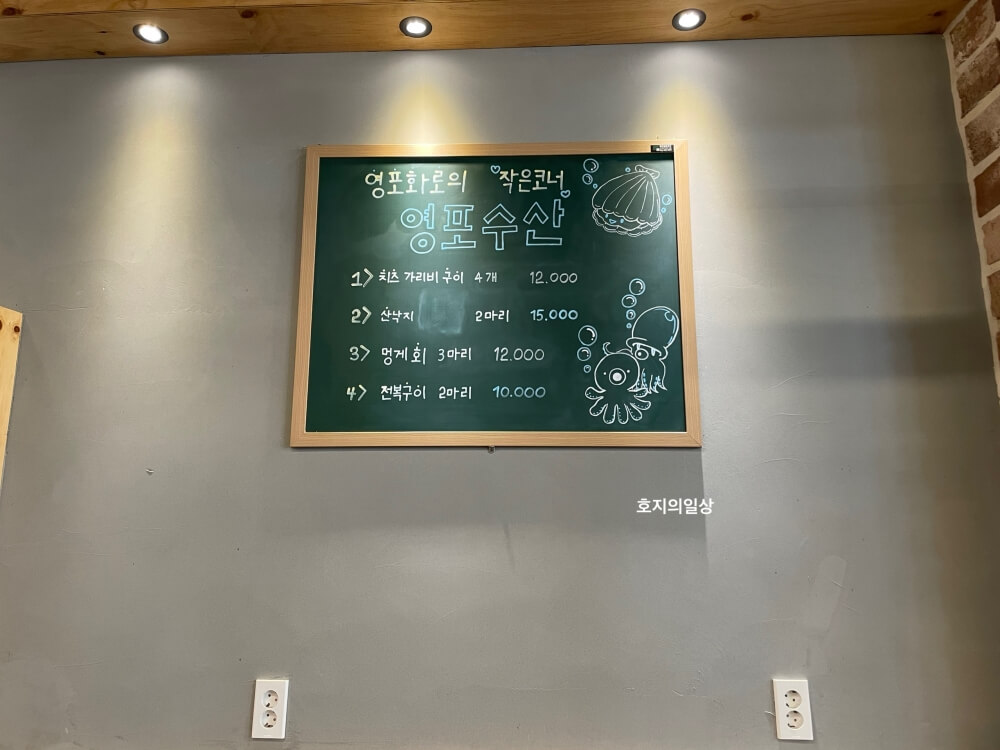 영포화로의 작은코너
영포수산
1> 치즈 가리비 구이 4개 12.000
2> 산낙지 2마리 15.000
3> 멍게 회 3마리 12.000
4> 전복구이 2마리 10.000
호지의일상